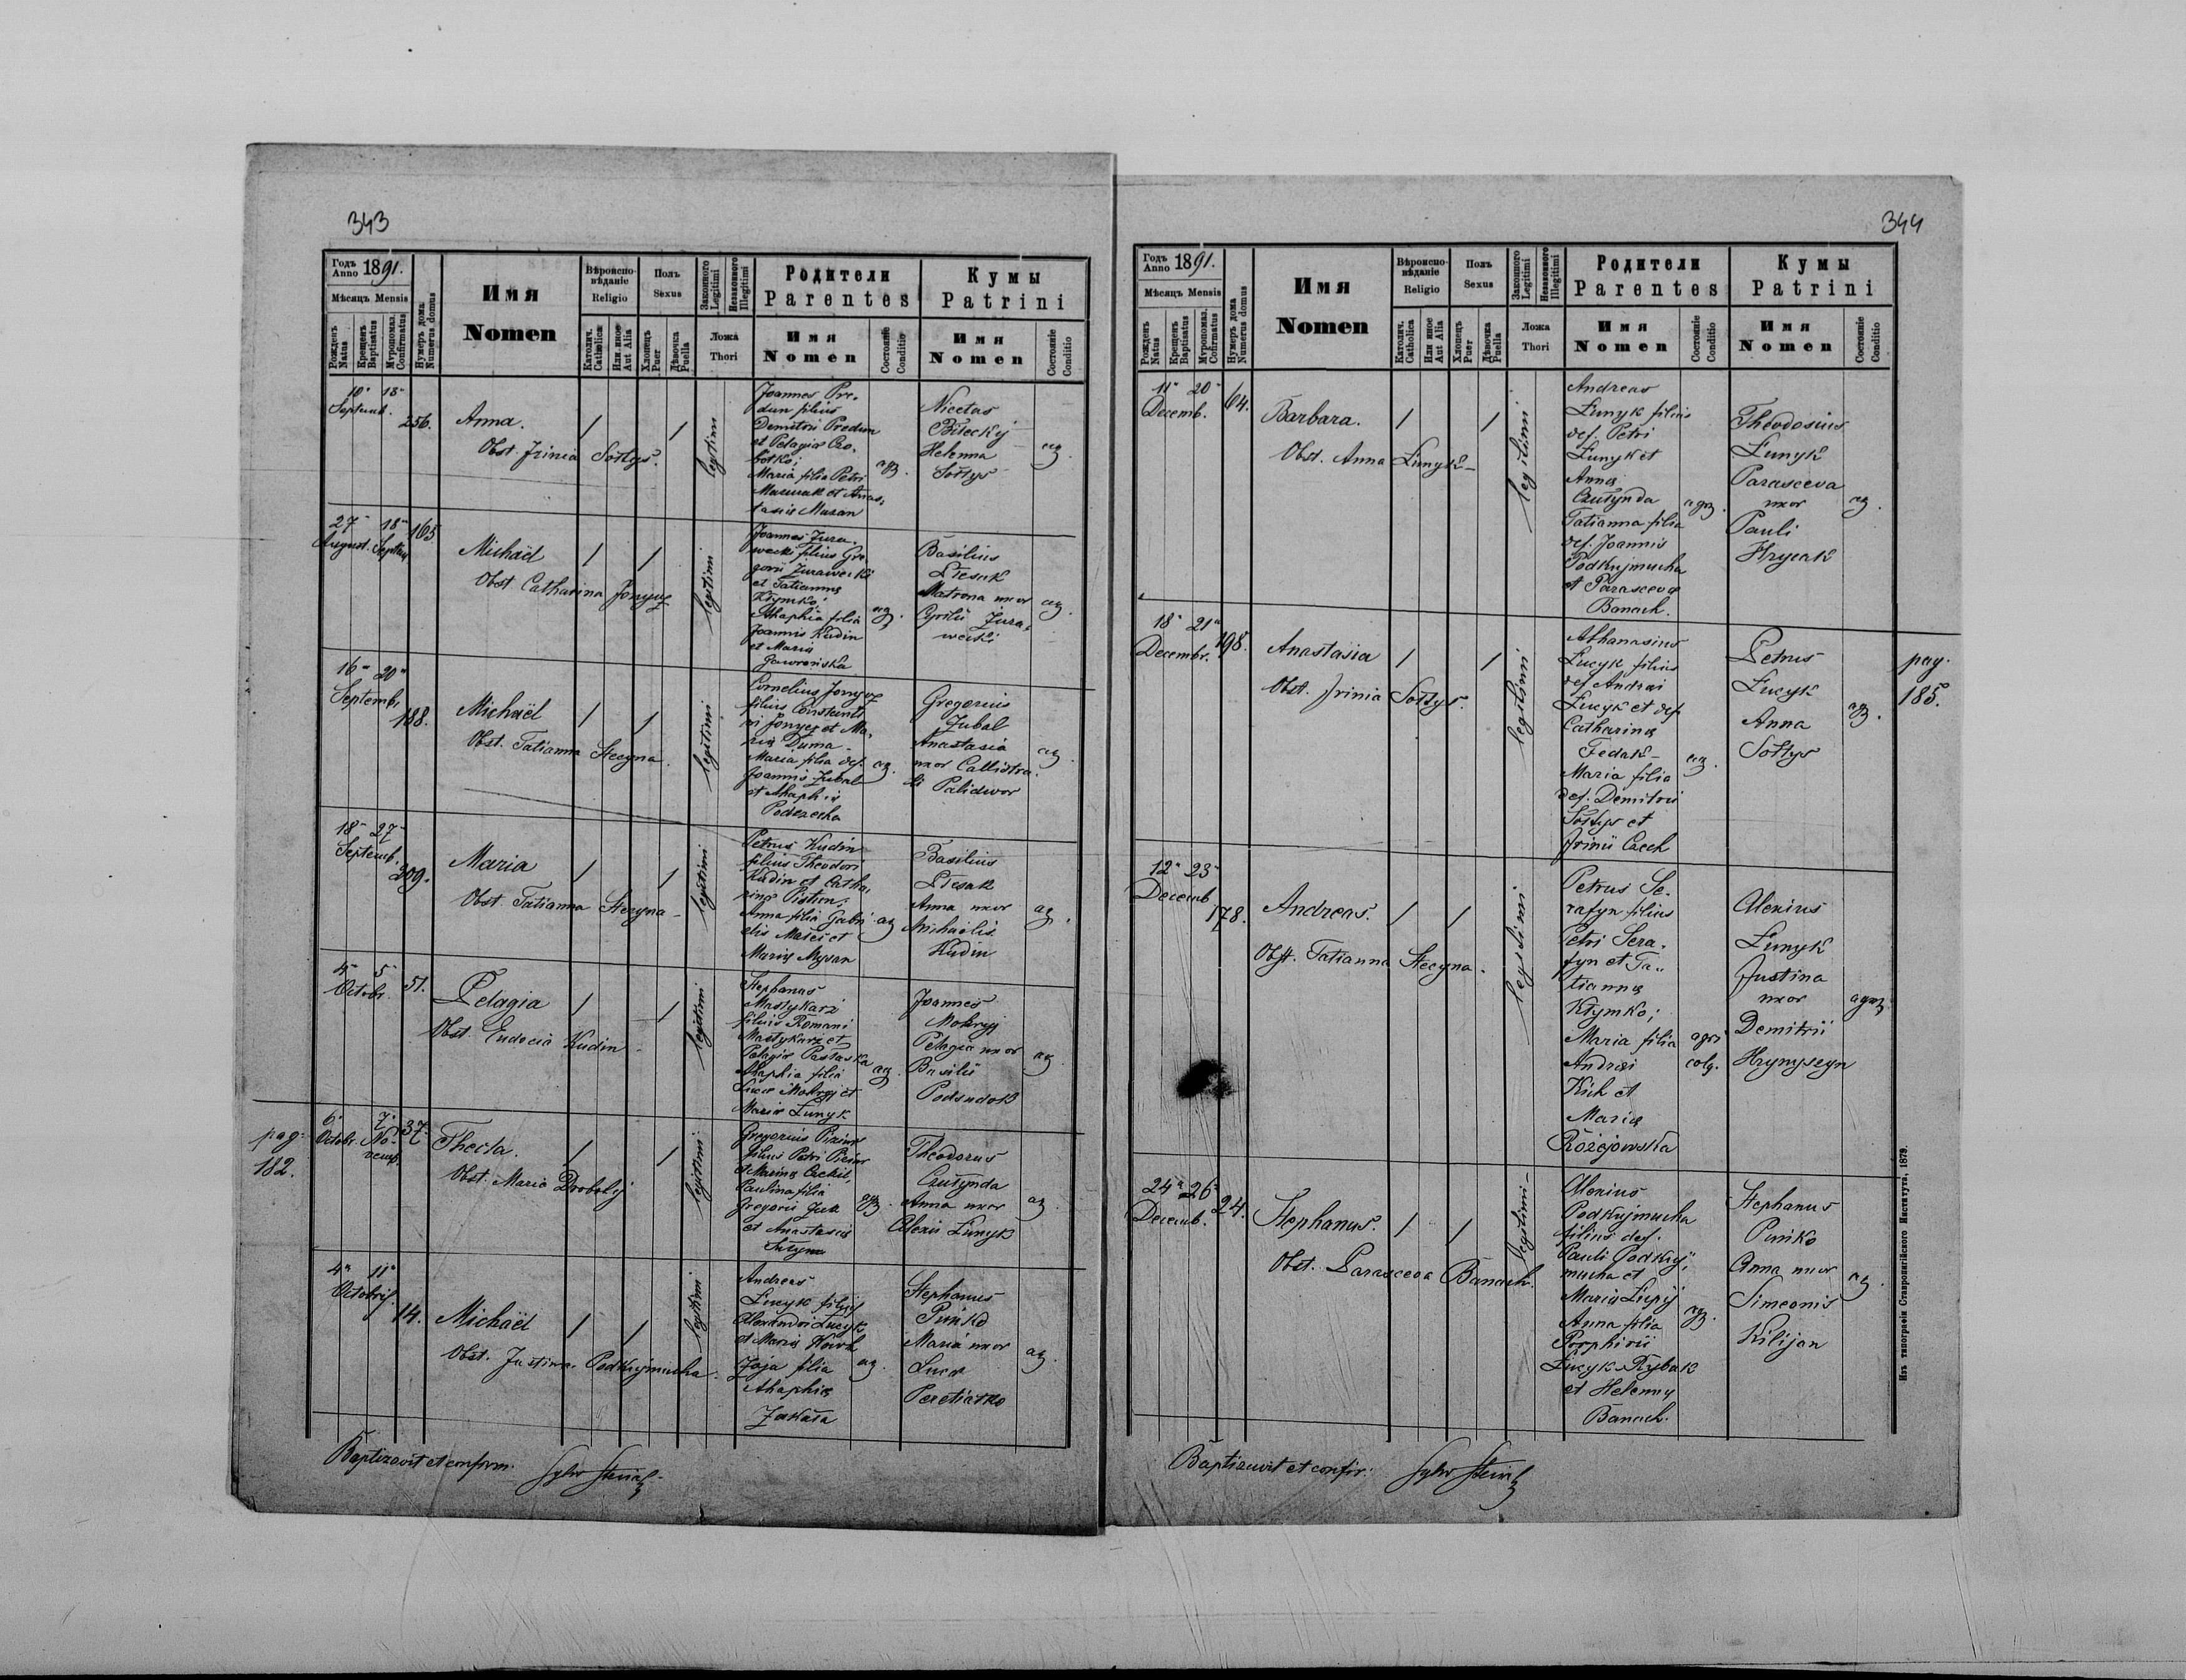 343
Годъ
Anno 1891.
Мѣсяцъ Mensis
Рожденъ
Natus
Крещенъ
Baptisatus
Мѵропомаз.
Confirmatus
Нумеръ дома
Numerus domus
Имя
Nomen
Вѣроиспо-
вѣданіе
Religio
Католич.
Catholica
Или иное
Aut Alia
Полъ
Sexus
Хлопецъ
Puer
Дѣвочка
Puella
Законного
Legitimi
Незаконного
Illegitimi
Ложа
Thori
Родители
Parentes
Имя
Nomen
Состояніе
Conditio
Кумы
Patrini
Имя
Nomen
Состояніе
Conditio
10" 13"
Septemb.
256.
Anna.
Obst. Irinia Sołtys.
legitimi
Joannes Pre-
dun filius
Demitri Predun
et Pelagiæ
Maria filia Petri
et Anas-
tasiæ Mazan
agr.
Nicetas
Biłeckij
Helenna
Sołtys
ag.
27" 18"
August. Septem
165
Michaël
Obst Catharina Jonyer
legitimi
Joannes Żura-
wecki filius Gre-
gorii Żurawecki
et Tatianna
Kłymko;
Ahaphia filia
Joannis Kudin
et Maria
Jaworońska
ag.
Basilius
Łesak
Matrona uxor
Cyrilii Żura-
wecki
ag.
16" 20"
Septemb.
188.
Michaël
Obst. Tatianna Stecyna.
legitimi
Cornelius Jonyer
filius Constanti
ni Jonyer et Ma-
riæ Duma -
Maria filia def.
Joannis Zubal
et Ahaphiæ
Podezecha
ag.
Gregorius
Zubal
Anastasia
uxor Callistra-
ti Palidwor
ag.
18" 27"
Septemb.
209.
Maria
Obst. Tatianna Stecyna -
legitimi
Petrus Kudin
filius Theodori
Kudin et Catha-
rinæ Pistun;
Anna filia Gabri
elis Maćei et
Mariæ Mysan
ag
Basilius
Łesak
Anna uxor
Michaelis
Kudin
ag.
4" 5"
Octobr.
51.
Pelagia
Obst. Eudocia Kudin -
legitimi
Stephanus
Mastykarz
filius Romani
Mastykarz et
Pelagiæ
Ahaphia filia
Lucæ Mokryj et
Mariæ Łunyk
ag.
Joannes
Mokryj
Pelagia uxor
Basilii
Podsudok
ag.
pag.
182.
6" 7"
Octobr. No-
vemb.
37.
Thecla.
Obst. Maria Drobolij
legitimi
Gregorius
filius Petri
et Marinæ
Paulina filia
Gregorii Żuk
et Anastasiæ
agr.
Theodorus
Czułynda
Anna uxor
Alexii Łunyk
ag.
4" 11"
Octobris
14.
Michaël
Obst. Justina Podkujmucha.
legitimi
Andreas
Łucyk filius
Alexandri Łucyk
et Mariæ
Zoja filia
Ahaphiæ
Zakała
ag.
Stephanus
Pińko
Maria uxor
Lucæ
Peretiatko
ag.
Baptizavit et confirm.
344
Годъ
Anno 1891.
Мѣсяцъ Mensis
Рожденъ
Natus
Крещенъ
Baptisatus
Мѵропомаз.
Cofirmatus
Нумеръ дома
Numerus domus
Имя
Nomen
Вѣроиспо-
вѣданіе
Religio
Католич.
Catholica
Или иное
Aut Alia
Полъ
Sexus
Хлопецъ
Puer
Дѣвочка
Puella
Законного
Legitimi
Незаконного
Illegitimi
Ложа
Thori
Родители
Parentes
Имя
Nomen
Состояніе
Conditio
Кумы
Patrini
Имя
Nomen
Состояніе
Conditio
11" 20"
Decemb.
64.
Barbara.
Obst. Anna Łunyk -
legitimi
Andreas
Łunyk filius
def. Petri
Łunyk et
Annæ
Czułynda
Tatianna filia
def. Joannis
Podkujmucha
et Parasceva
Banach.
agr.
Theodosius
Łunyk
Parasceva
uxor
Pauli
Hrycak
ag.
18" 21"
Decembr.
198.
Anastasia
Obst. Irinia Sołtys.
legitimi
Athanasius
Łucyk filius
def Andræi
Łucyk et def
Catharinæ
Fedak -
Maria filia
def. Demitrii
Sołtys et
Irinii Czech
ag.
Petrus
Łucyk
Anna
Sołtys
agr.
pag.
185.
12" 23"
Decemb
178.
Andreas.
Obst. Tatianna Stecyna.
legitimi
Petrus Se-
rafyn filius
Petri Sera-
fyn et Ta-
tianna
Kłymko;
Maria filia
Andræi
Kich et
Mariæ
Rożejowska
agri
colg.
Alexius
Łunyk
Justina
uxor
Demitrii
Hrynyszyn
agr.
24" 26"
Decemb.
24.
Stephanus.
Obst. Parasceva Banach.
legitimi -
Alexius
Podkujmucha
filius def.
Pauli Podkuj-
mucha et
Mariæ Łupij
Anna filia
Porphirii
Łucyk Rybak
et Helennæ
Banach.
agr.
Stephanus
Pińko
Anna uxor
Simeonis
Kilijan
ag.
Baptizavit et confir:
Изъ типографіи Ставропигійского Института, 1879.